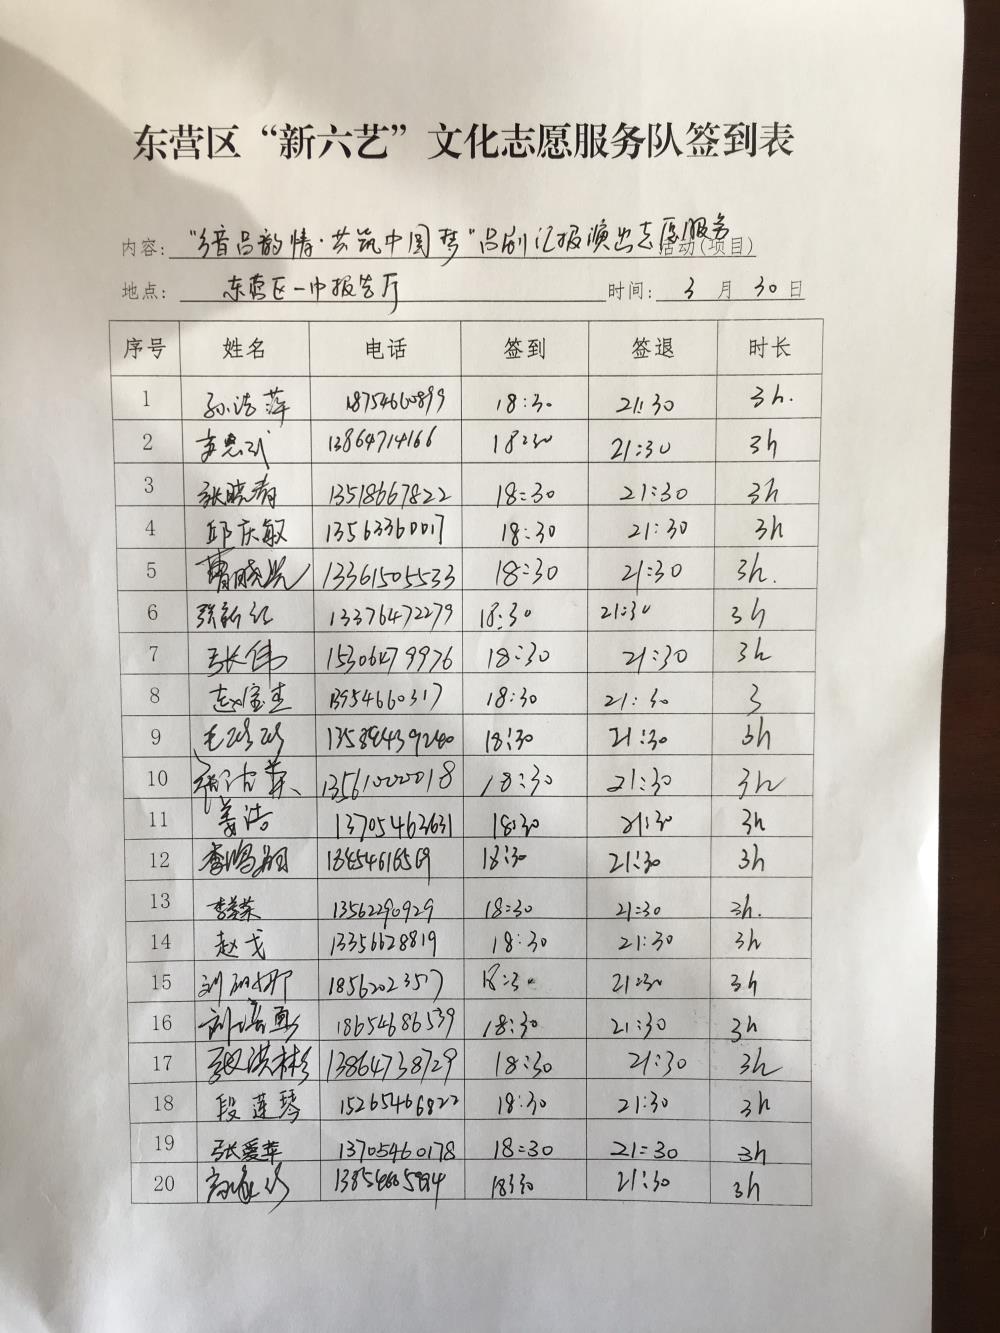 东营区“新六艺”文化志愿服务队签到表
内容: “乡音吕韵情·共筑中国梦”吕剧汇报演出志愿服务活动(项目)
地点: 东营区一中报告厅 时间: 3 月 30 日
序号 姓名 电话 签到 签退 时长
1 孙洁萍 18754660899 18:30 21:30 3h.
2 13864714166 18:30 21:30 3h
3 张晓青 13518667822 18:30 21:30 3h
4 邱庆敏 13563360017 18:30 21:30 3h
5 曹晓 13361505533 18:30 21:30 3h.
6 张新红 13376472279 18:30 21:30 3h
7 张伟 15306479976 18:30 21:30 3h
8 赵宝杰 13954660317 18:30 21:30 3
9 毛 18:30 21:30 3h
10 13561000018 18:30 21:30 3h
11 姜浩 13705463631 18:30 21:30 3h
12 李鸣翔 18:30 21:30 3h
13 李美荣 13562290929 18:30 21:30 3h.
14 赵戈 13356628819 18:30 21:30 3h
15 刘娜 18562023577 18:30 21:30 3h
16 刘 18654686539 18:30 21:30 3h
17 张洪彬 13864738729 18:30 21:30 3h
18 段莲琴 15265466822 18:30 21:30 3h
19 张爱苹 13705460178 18:30 21:30 3h
20 18:30 21:30 3h